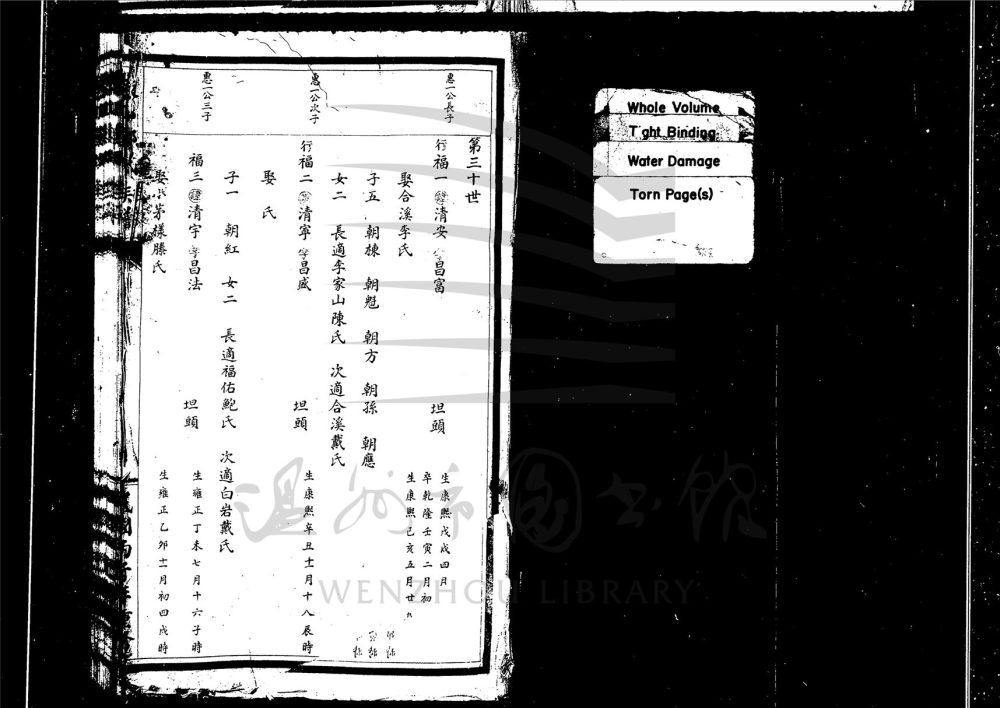 惠一公長子
惠一公次子
惠一公三子
第三十世
行福一 清安 字昌富 坦頭 生康熙戊戌四月
卒乾隆壬寅二月初
娶合溪李氏 生康熙己亥五月廿九
子五 朝棟 朝魁 朝方 朝孫 朝應
女二 長適李家山陳氏 次適合溪戴氏
行福二 清寧 字昌盛 坦頭 生康熙辛丑十一月十八辰時
娶 氏
子一 朝紅 女二 長適福佑鮑氏 次適白岩戴氏
福三 清宇 字昌法 坦頭 生雍正丁未七月十六子時
娶 茅樣滕氏 生雍正乙卯十一月初四戌時
Whole Volume
Tight Binding
Water Damage
Torn Page(s)
溫州市图书館
WENZHOU LIBRARY